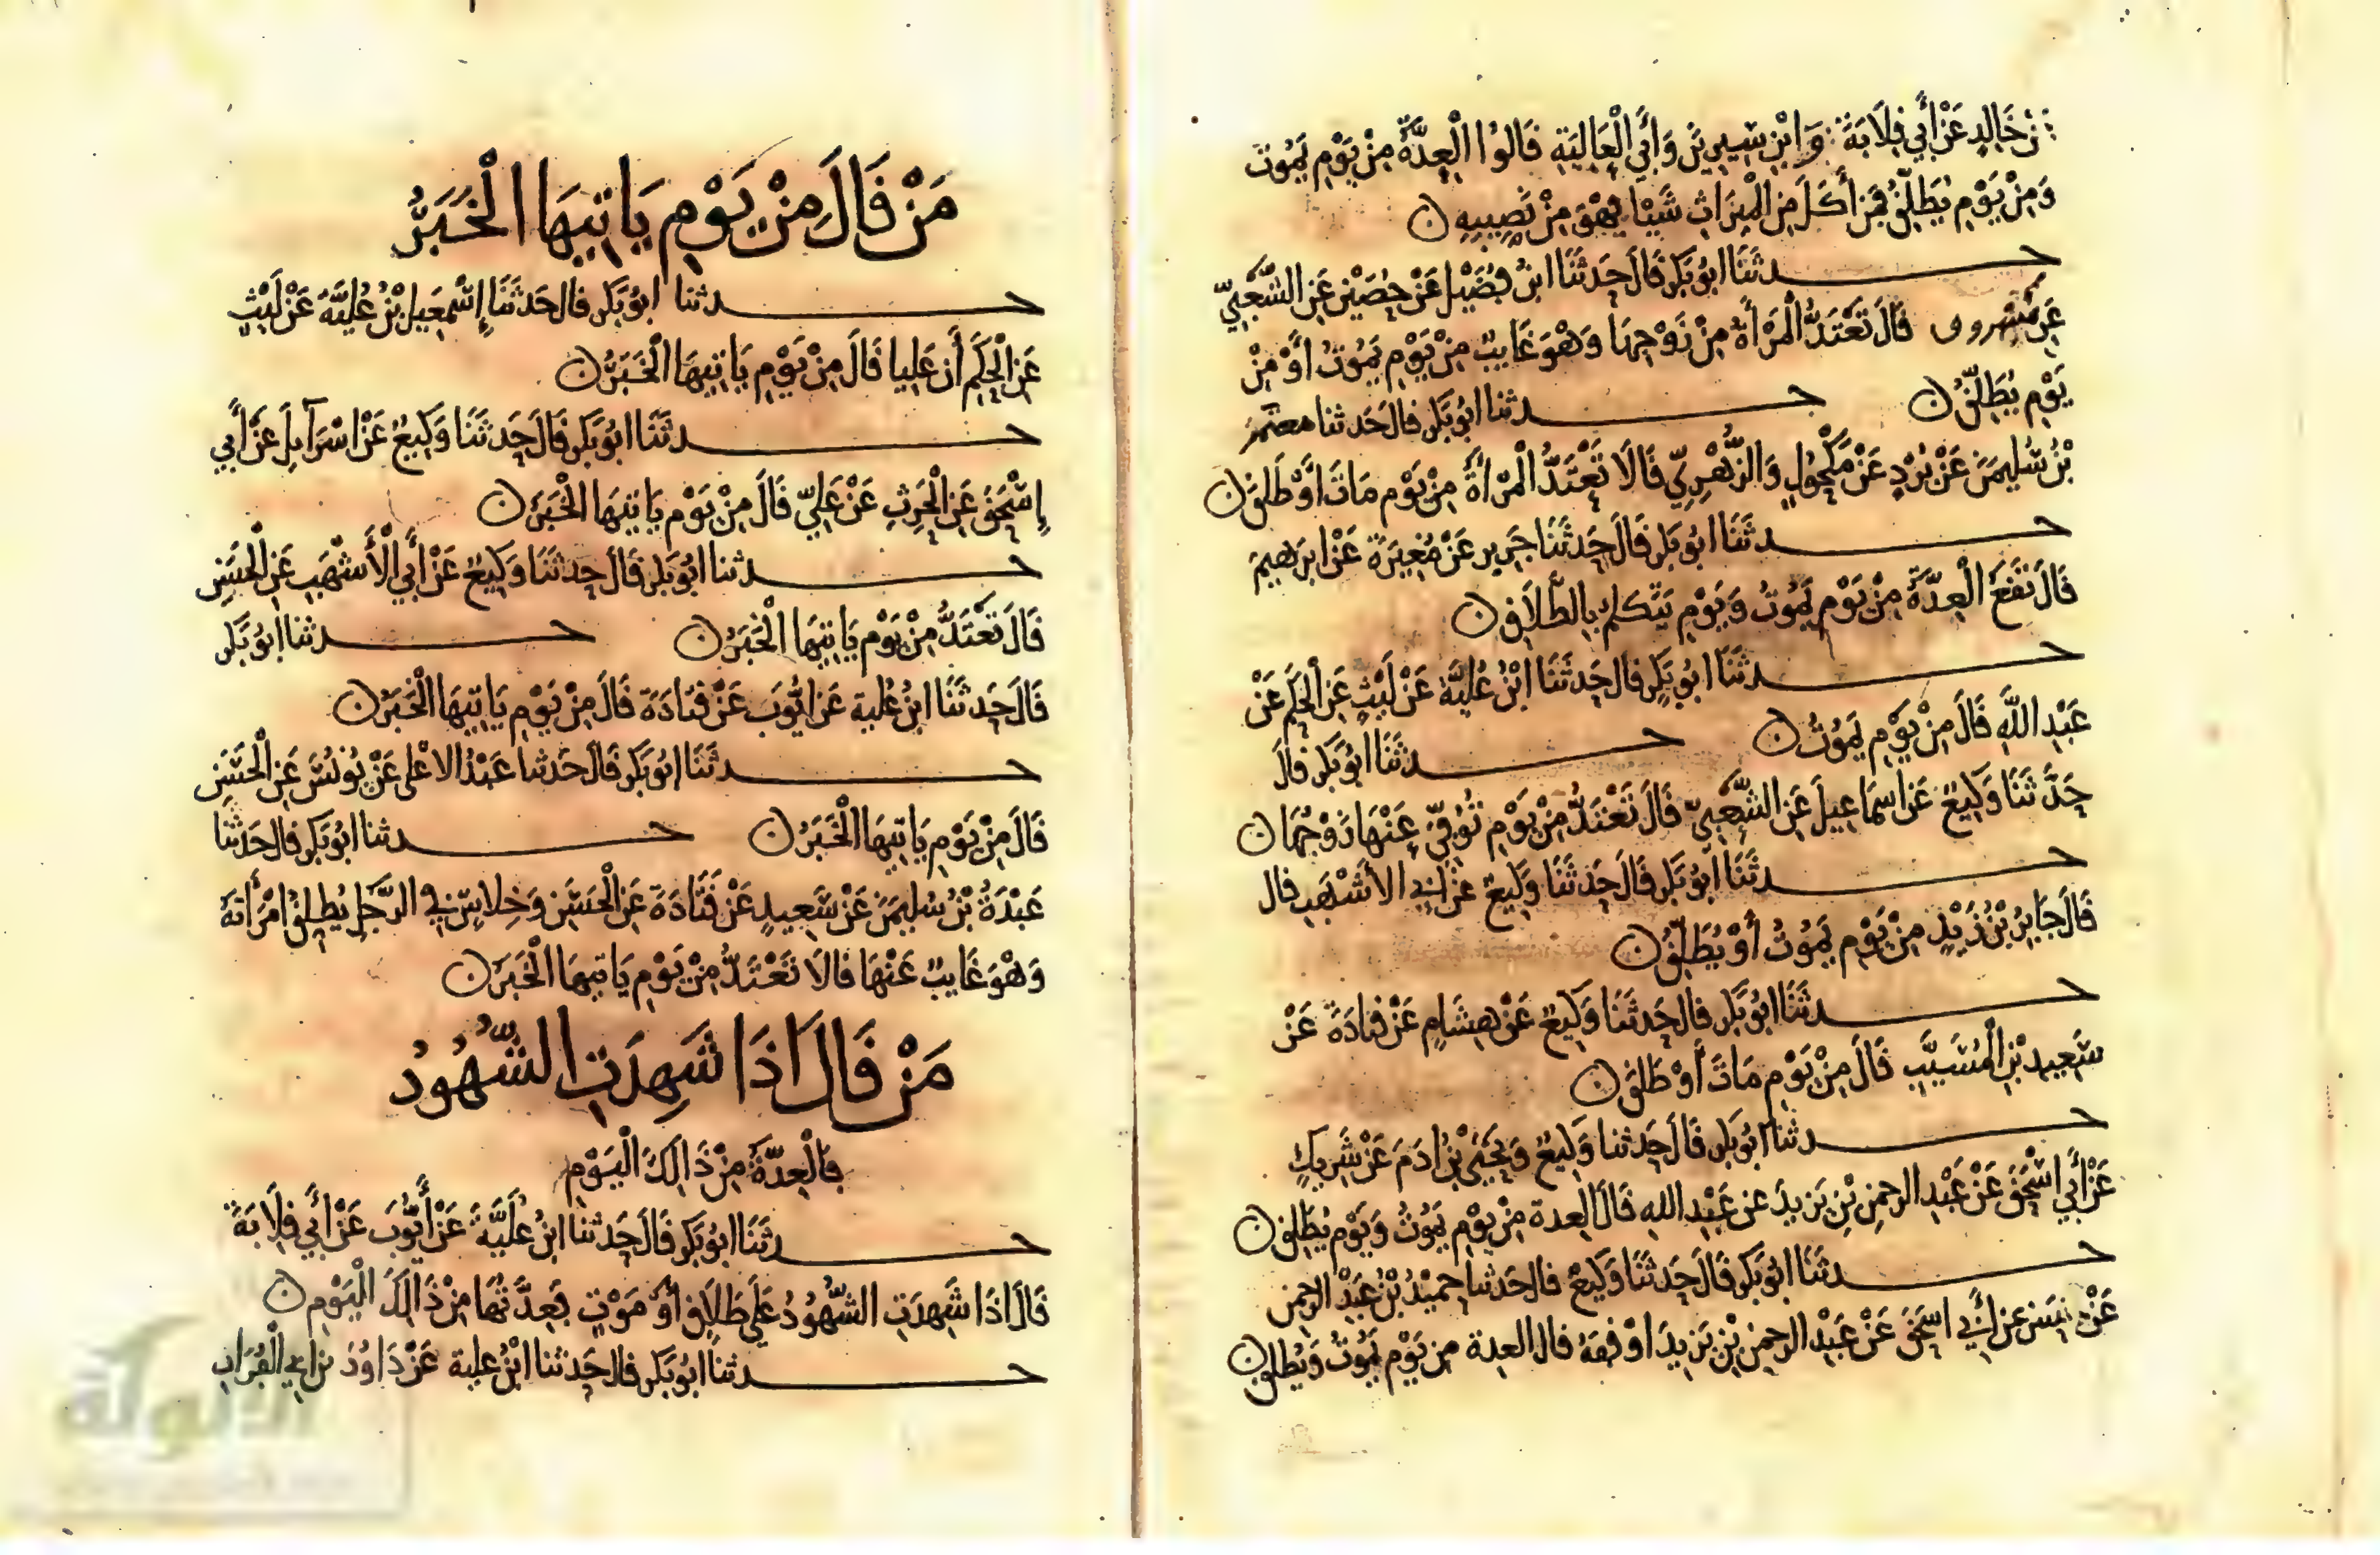 عَنْ خَالِدٍ عَنْ أَبِي قِلَابَةَ وَابْنِ سِيرِينَ وَأَبِي الْعَالِيَةِ قَالُوا الْعِدَّةُ مِنْ يَوْمِ يَمُوتُ
وَمِنْ يَوْمِ يُطَلِّقُ فَمَنْ أَكَلَ مِنَ الْمِيرَاثِ شَيْئا فَهْوَ مِنْ نَصِيبِهِ ن
حدثَنَا ابُو بَكرٍ قَالَ حَدثَنَا ابنُ فُضَيْلٍ عَنْ حُصَيْنٍ عَنِ الشَّعْبِيِّ
عَنْ مَسْرُوق قَالَ تَعْتَدُّ الْمَرْأَةُ مِنْ زَوْجِهَا وَهْوَ غَايِبٌ مِنْ يَوْمِ يَمُوتُ أَوْ مِنْ
يَوْمِ يُطَلِّقُ ن حدثنا ابُو بَكرٍ قَالَ حَدثنا معتمرُ
بْنُ سُلَيمَنَ عَنْ بُرْدٍ عَنْ مَكْحُولٍ وَالزُّهْرِيِّ قَالَا تَعْتَدُّ الْمَرْأَةُ مِنْ يَوْمِ مَاتَ أَوْ طَلقَ ن
حدثَنَا ابُو بَكرٍ قَالَ حَدثَنَا جَرِير عَنْ مُغِيرَةَ عَنْ ابرَهِيمَ
قَالَ تَقَعُ الْعِدَّةُ مِنْ يَوْمِ يَمُوتُ وَيَوْمِ يَتَكلم بِالطَّلَاقِ ن
حدثَنَا ابُو بَكرٍ قَالَ حَدثَنَا ابْنُ عُلَيَّةَ عَنْ لَيْثٍ عَنِ الْحَكَمِ عَنْ
عَبْدِ اللَّهِ قَالَ مِنْ يَوْمِ يَمُوتُ ن حدثَنَا ابُو بَكرٍ قَالَ
حَدَّثَنَا وَكِيعٌ عَنْ اسمَاعِيلَ عَنِ الشَّعْبِيِّ قَالَ تَعْتَدُّ مِنْ يَوْمِ تُوُفِّيَ عَنْهَا زَوْجُهَا ن
حدثَنَا ابُو بَكرٍ قَالَ حَدثَنَا وَكِيعٌ عَنْ أبِي الأَشْهَبِ قال
قَالَ جَابِرُ بْنُ زَيْدٍ مِنْ يَوْمِ يَمُوتُ أَوْ يُطَلِّقُ ن
حدثَنَا ابُو بَكرٍ قَالَ حَدثَنَا وَكِيعٌ عَنْ هِشَامٍ عَنْ قتَادَةَ عَنْ
سَعِيدِ بْنِ الْمُسَيَّبِ قَالَ مِنْ يَوْمِ مَاتَ أَوْ طَلقَ ن
حدثنا ابُو بَكرٍ قَالَ حَدثنا وَكِيعٌ وَيَحْيَى بْنُ ادَمَ عَنْ شَرِيكٍ
عَنْ أَبِي اسْحَقَ عَنْ عَبْدِ الرحمنِ بْنِ يَزِيدَ عن عَبْدِ اللهِ قَالَ الْعِدة مِنْ يَوْمِ يَمُوتُ وَيَوْمِ يُطَلِّقُ ن
حدثَنَا ابُو بَكرٍ قَالَ حَدثَنَا وَكِيعٌ قَالَ حَدثنا حميْدُ بْنُ عَبْدِ الرحمن
عَنْ حسن عن أَبِي اسحَقَ عَنْ عَبْدِ الرحمنِ بْنِ يَزِيدَ أوْقفهُ قال العِدة مِن يَوْمِ يَمُوتُ وَيُطلِّقُ ن
مَنْ قَالَ مِنْ يَوْمِ يَاتِيهَا الْخَبَرُ
حدثنا ابُو بَكرٍ قال حَدثَنَا إِسْمعِيلُ بْنُ عُلَيَّةَ عَنْ لَيْثٍ
عَنِ الْحَكَمِ أَن عَلِيا قَالَ مِنْ يَوْمِ يَاتِيهَا الْخَبَرُ ن
حدثَنَا ابُو بَكرٍ قَالَ حَدثَنَا وَكِيعٌ عَنْ اسْرَآيِلَ عَنْ أَبِي
إِسْحَقَ عَنِ الْحَرِثِ عَنْ عَلِيٍّ قَالَ مِنْ يَوْمِ يَاتِيهَا الْخَبَرُ ن
حدثنا ابُو بَكرٍ قَالَ حَدثَنَا وَكِيعٌ عَنْ أَبِي الْأَشْهَبِ عَنِ الْحَسَنِ
قَالَ تَعْتَدُّ مِنْ يَوْمِ يَاتِيهَا الْخَبَرُ ن حدثنا ابُو بَكرٍ
قَالَ حَدثَنَا ابنُ عُلَية عَنْ ايُّوبَ عَنْ قتَادَةَ قَالَ مِنْ يَوْمِ يَاتِيهَا الْخَبَرُ ن
حدثَنَا ابُو بَكرٍ قَالَ حَدثنا عَبْدُ الاعْلى عَنْ يُونُسَ عَنِ الْحَسَنِ
قَالَ مِنْ يَوْمِ يَاتِيهَا الْخَبَرُ ن حدثنا ابُو بَكرٍ قَالَ حَدثَنَا
عَبْدَةُ بْنُ سُلَيمَنَ عَنْ سَعِيدٍ عَنْ قَتَادَةَ عَنِ الْحَسَنِ وَخِلَاسٍ فِي الرَّجُلِ يُطلِقُ امْرَأتَهُ
وَهْوَ غَايبٌ عَنْهَا قَالَا تَعْتَدُّ مِنْ يَوْمِ يَاتِيهَا الْخَبَرُ ن
مَنْ قَالَ اذَا شَهِدَتِ الشُّهُودُ
فالْعِدَّةُ مِنْ ذَالِكَ الْيَوْمِ
حدثَنَا ابُو بَكرٍ قَالَ حَدثنا ابنُ عُلَيَّةَ عَنْ أَيُّوبَ عَنْ أَبِي قِلَابَةَ
قَالَ اذَا شَهِدَتِ الشُّهُودُ عَلَى طَلَاقٍ أَوْ مَوْتٍ فَعِدَّتُهَا مِنْ ذَالِكَ الْيَوْمِ ن
حدثنا ابُو بَكرٍ قَالَ حَدثنا ابْنُ علية عَنْ دَاوُدَ بن أبي الْفُرَاتِ
الألوكة